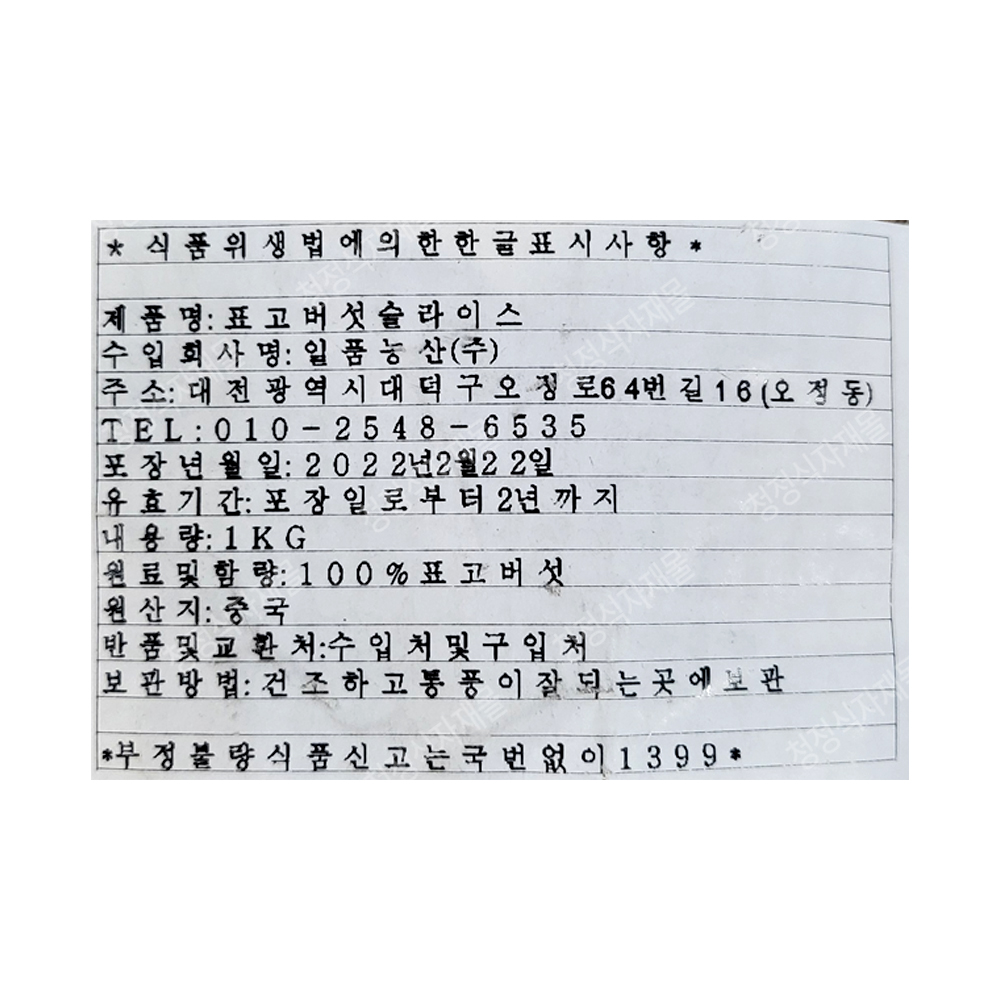 * 식품위생법에의한한글표시사항 *
제품명: 표고버섯슬라이스
수입회사명: 일품농산(주)
주소: 대전광역시대덕구오정로64번길16(오정동)
TEL:010-2548-6535
포장년월일: 2022년2월22일
유효기간: 포장일로부터 2년까지
내용량: 1KG
원료및함량: 100%표고버섯
원산지: 중국
반품및교환처:수입처및구입처
보관방법: 건조하고통풍이잘되는곳에보관
*부정불량식품신고는국번없이1399*
청정식자재몰